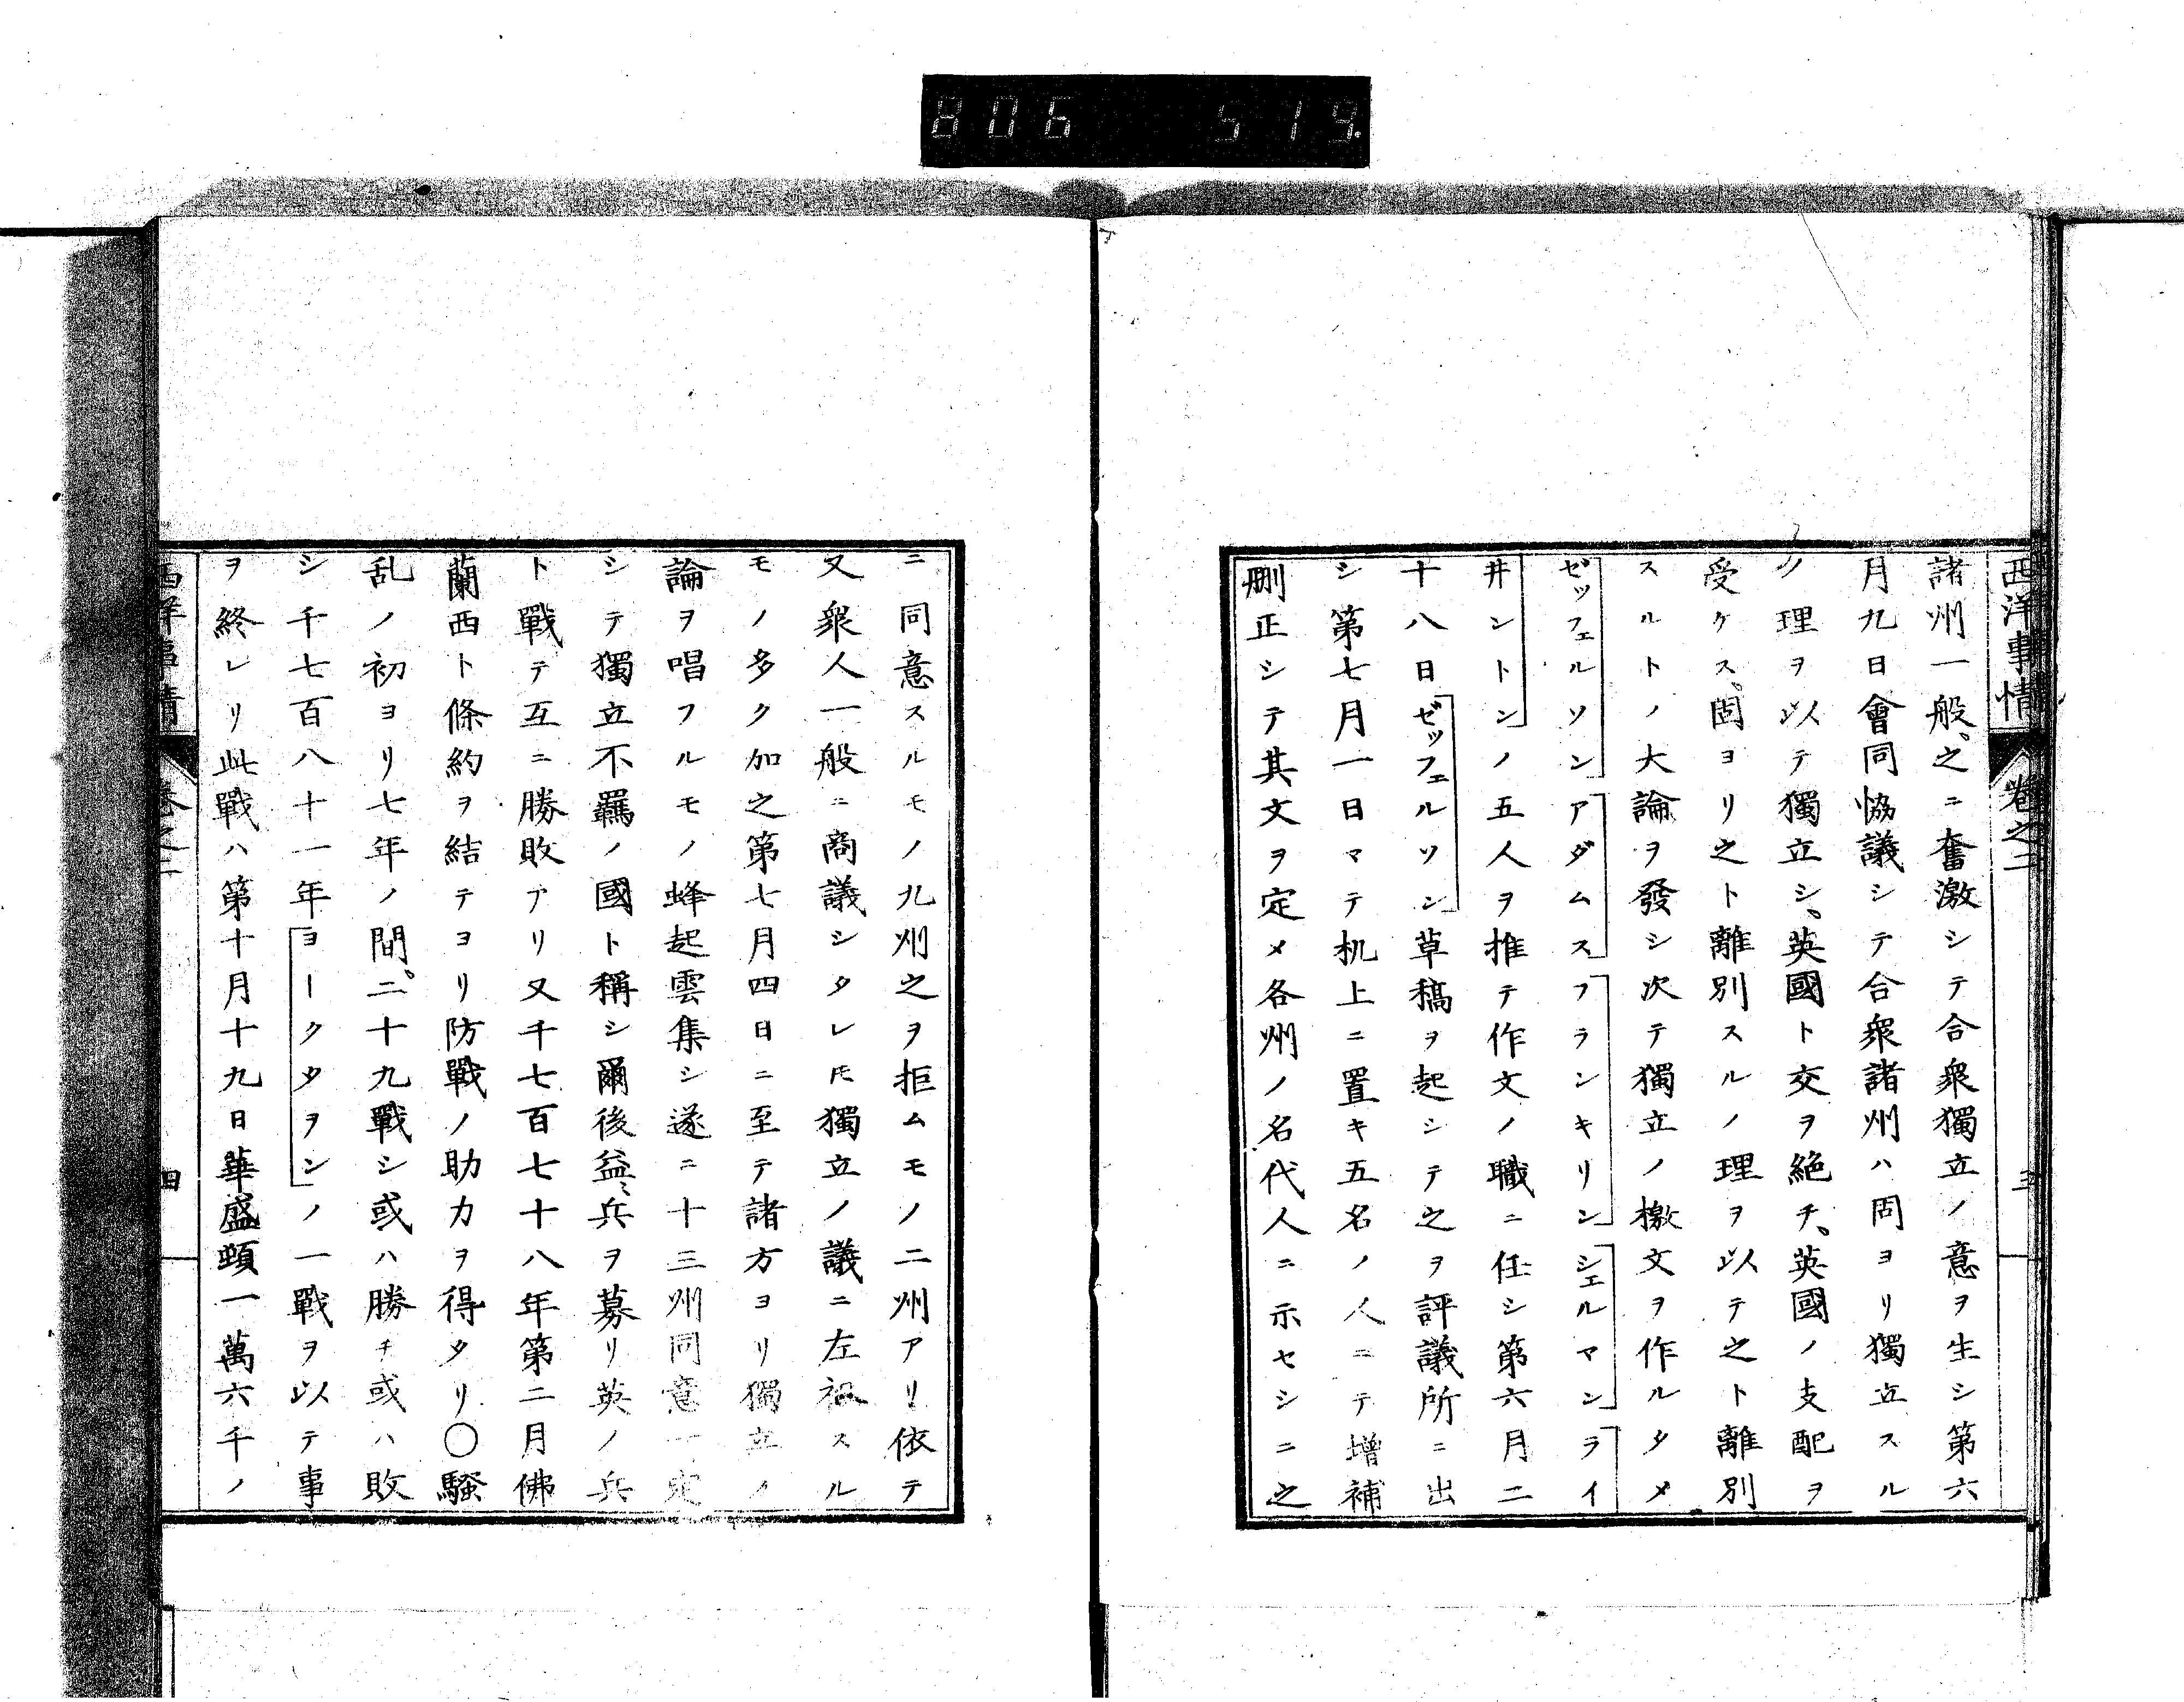 806 519.
西洋事情 卷之二 三
諸州一般、之ニ奮激シテ合衆獨立ノ意ヲ生シ第六
月九日會同協議シテ合衆諸州ハ固ヨリ獨立スル
ノ理ヲ以テ獨立シ、英國ト交ヲ絶チ、英國ノ支配ヲ
受ケス、固ヨリ之ト離別スルノ理ヲ以テ之ト離別
スルトノ大論ヲ發シ次テ獨立ノ檄文ヲ作ルタメ
ゼッフェルソンアダムスフランキリンシェルマンライ
井ントンノ五人ヲ推テ作文ノ職ニ任シ第六月二
十八日ゼッフェルソン草稿ヲ起シテ之ヲ評議所ニ出
シ第七月一日マテ机上ニ置キ五名ノ人ニテ增補
删正シテ其文ヲ定メ各州ノ名代人ニ示セシニ之
ニ同意スルモノ九州之ヲ拒ムモノ二州アリ依テ
又衆人一般ニ商議シタレ𪜈獨立ノ議ニ左袒スル
モノ多ク加之第七月四日ニ至テ諸方ヨリ獨立ノ
論ヲ唱フルモノ蜂起雲集シ遂ニ十三州同意一定
シテ獨立不羈ノ國ト稱シ爾後益〻兵ヲ募リ英ノ兵
ト戰テ互ニ勝敗アリ又千七百七十八年第二月佛
蘭西ト條約ヲ結テヨリ防戰ノ助力ヲ得タリ〇騷
乱ノ初ヨリ七年ノ間。二十九戰シ或ハ勝チ或ハ敗
シ千七百八十一年ヨークタヲンノ一戰ヲ以テ事
ヲ終レリ此戰ハ第十月十九日華盛頓一萬六千ノ
西洋事情 卷之二 四